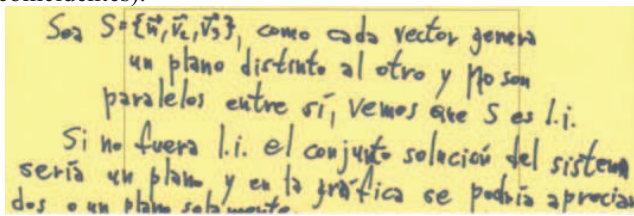 coincidentes).
Sea S={v⃗₁,v⃗₂,v⃗₃}, como cada vector genera
un plano distinto al otro y no son
paralelos entre sí, vemos que S es l.i.
Si no fuera l.i. el conjunto solución del sistema
sería un plano y en la gráfica se podría apreciar
dos o un plano solamente.